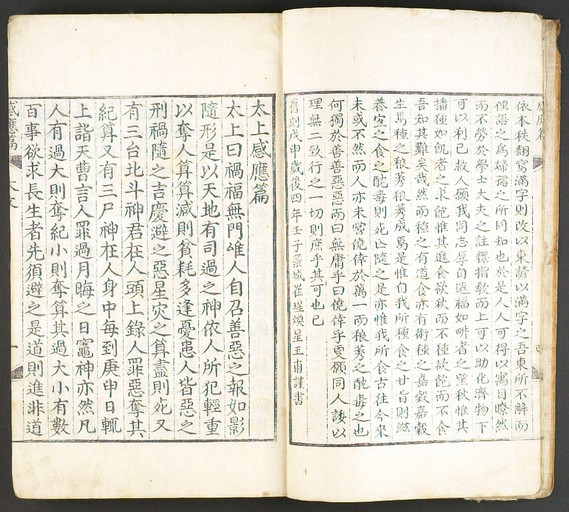 依本秩翻寫滿字則改以東諺以滿字之吾東所不解而
俚諺之爲婦孺之所同知也於是人人可得以寓目瞭然
而不勞於學士大夫之註釋指敎而上可以助化齊物下
可以利己救人願我同志厚自造福如畊者之望秋惟其
播種如飢者之求飽惟其進食欲秋而不種欲飽而不食
吾知其難矣哉然而種之有道食亦有術種之嘉穀嘉穀
生焉種之稂莠稂莠成焉是惟自我所種食之甘旨則滋
養定之食之酖毒則死亡隨之是亦惟我所食古往今來
未或不然而人亦未嘗僥倖於萬一而稂莠之酖毒之也
何獨於善善惡惡而曰無庸乎曰僥倖乎更願同人諉以
理無二致行之一切則庶乎其可也已
舊剏戊申歲後四年壬子 崔瑆煥星玉甫謹書
太上感應篇
太上曰禍福無門唯人自召善惡之報如影
隨形是以天地有司過之神依人所犯輕重
以奪人算算減則貧耗多逢憂患人皆惡之
刑禍隨之吉慶避之惡星灾之算盡則死又
有三台北斗神君在人頭上錄人罪惡奪其
紀算又有三尸神在人身中每到庚申日輒
上詣天曹言人罪過月晦之日竈神亦然凡
人有過大則奪紀小則奪算其過大小有數
百事欲求長生者先須避之是道則進非道
感應篇
一